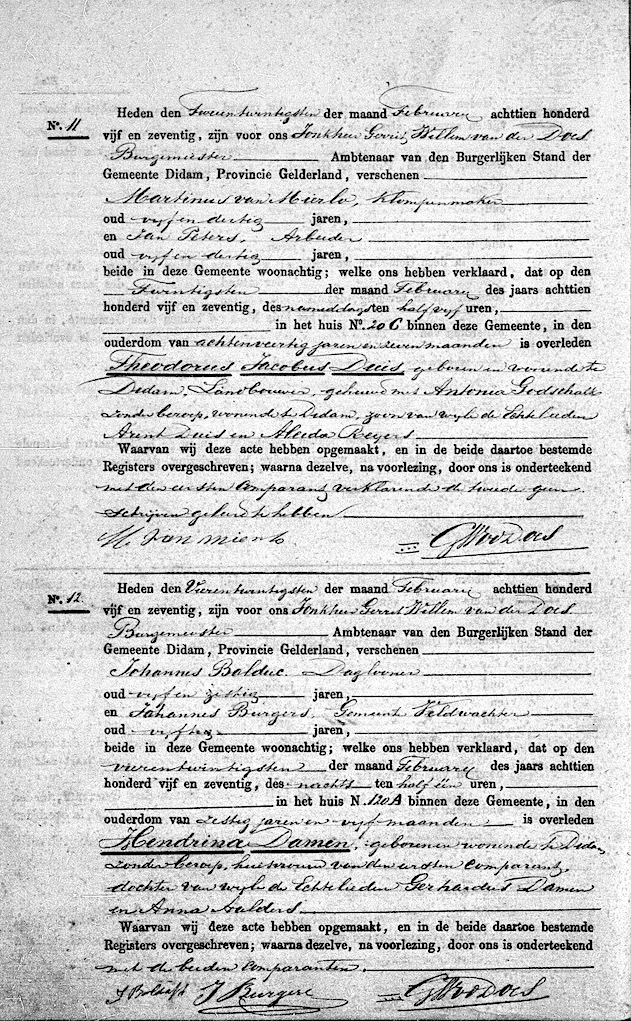 Heden den Tweentwintigsten der maand Februarij achttien honderd
No. 11
vijf en zeventig, zijn voor ons Jonkheer Gerrit Willem van der Does
Burgemeester Ambtenaar van den Burgerlijken Stand der
Gemeente Didam, Provincie Gelderland, verschenen
Martinus van Mierlo, Klompenmaker
oud vijf en dertig jaren,
en Jan Peters, Arbeider
oud vijf en dertig jaren,
beide in deze Gemeente woonachtig; welke ons hebben verklaard, dat op den
Twintigsten der maand Februarij des jaars achttien
honderd vijf en zeventig, des namiddags ten half vijf uren,
in het huis No. 20 C binnen deze Gemeente, in den
ouderdom van achtenveertig jaren en zeven maanden is overleden
Theodorus Jacobus Duis, geboren en wonende te
Didam, Landbouwer, gehuwd met Antonia Godschalk
zonder beroep, wonende te Didam, zoon van wijlen de Echtelieden
Arent Duis en Aleida Reyers
Waarvan wij deze acte hebben opgemaakt, en in de beide daartoe bestemde
Registers overgeschreven; waarna dezelve, na voorlezing, door ons is onderteekend
met den eersten Comparant verklarende de tweede geen
schrijven geleerd te hebben
M. van mierlo GWvdDoes
Heden den Vierentwintigsten der maand Februarij achttien honderd
No. 12.
vijf en zeventig, zijn voor ons Jonkheer Gerrit Willem van der Does
Burgemeester Ambtenaar van den Burgerlijken Stand der
Gemeente Didam, Provincie Gelderland, verschenen
Johannes Balduc. Daglooner
oud vijf en zestig jaren,
en Johannes Burgers, Gemeente Veldwachter
oud vijftig jaren,
beide in deze Gemeente woonachtig; welke ons hebben verklaard, dat op den
vierentwintigsten der maand Februarij des jaars achttien
honderd vijf en zeventig, des nachts ten half één uren,
in het huis N. 120A binnen deze Gemeente, in den
ouderdom van zestig jaren en vijf maanden is overleden
Hendrina Damen, geboren en wonende te Didam
zonder beroep, huisvrouw van den eersten Comparant,
dochter van wijlen de Echtelieden Gerhardus Damen
en Anna Aalders
Waarvan wij deze acte hebben opgemaakt, en in de beide daartoe bestemde
Registers overgeschreven; waarna dezelve, na voorlezing, door ons is onderteekend
met de beiden Comparanten.
J Burgers GWvdDoes